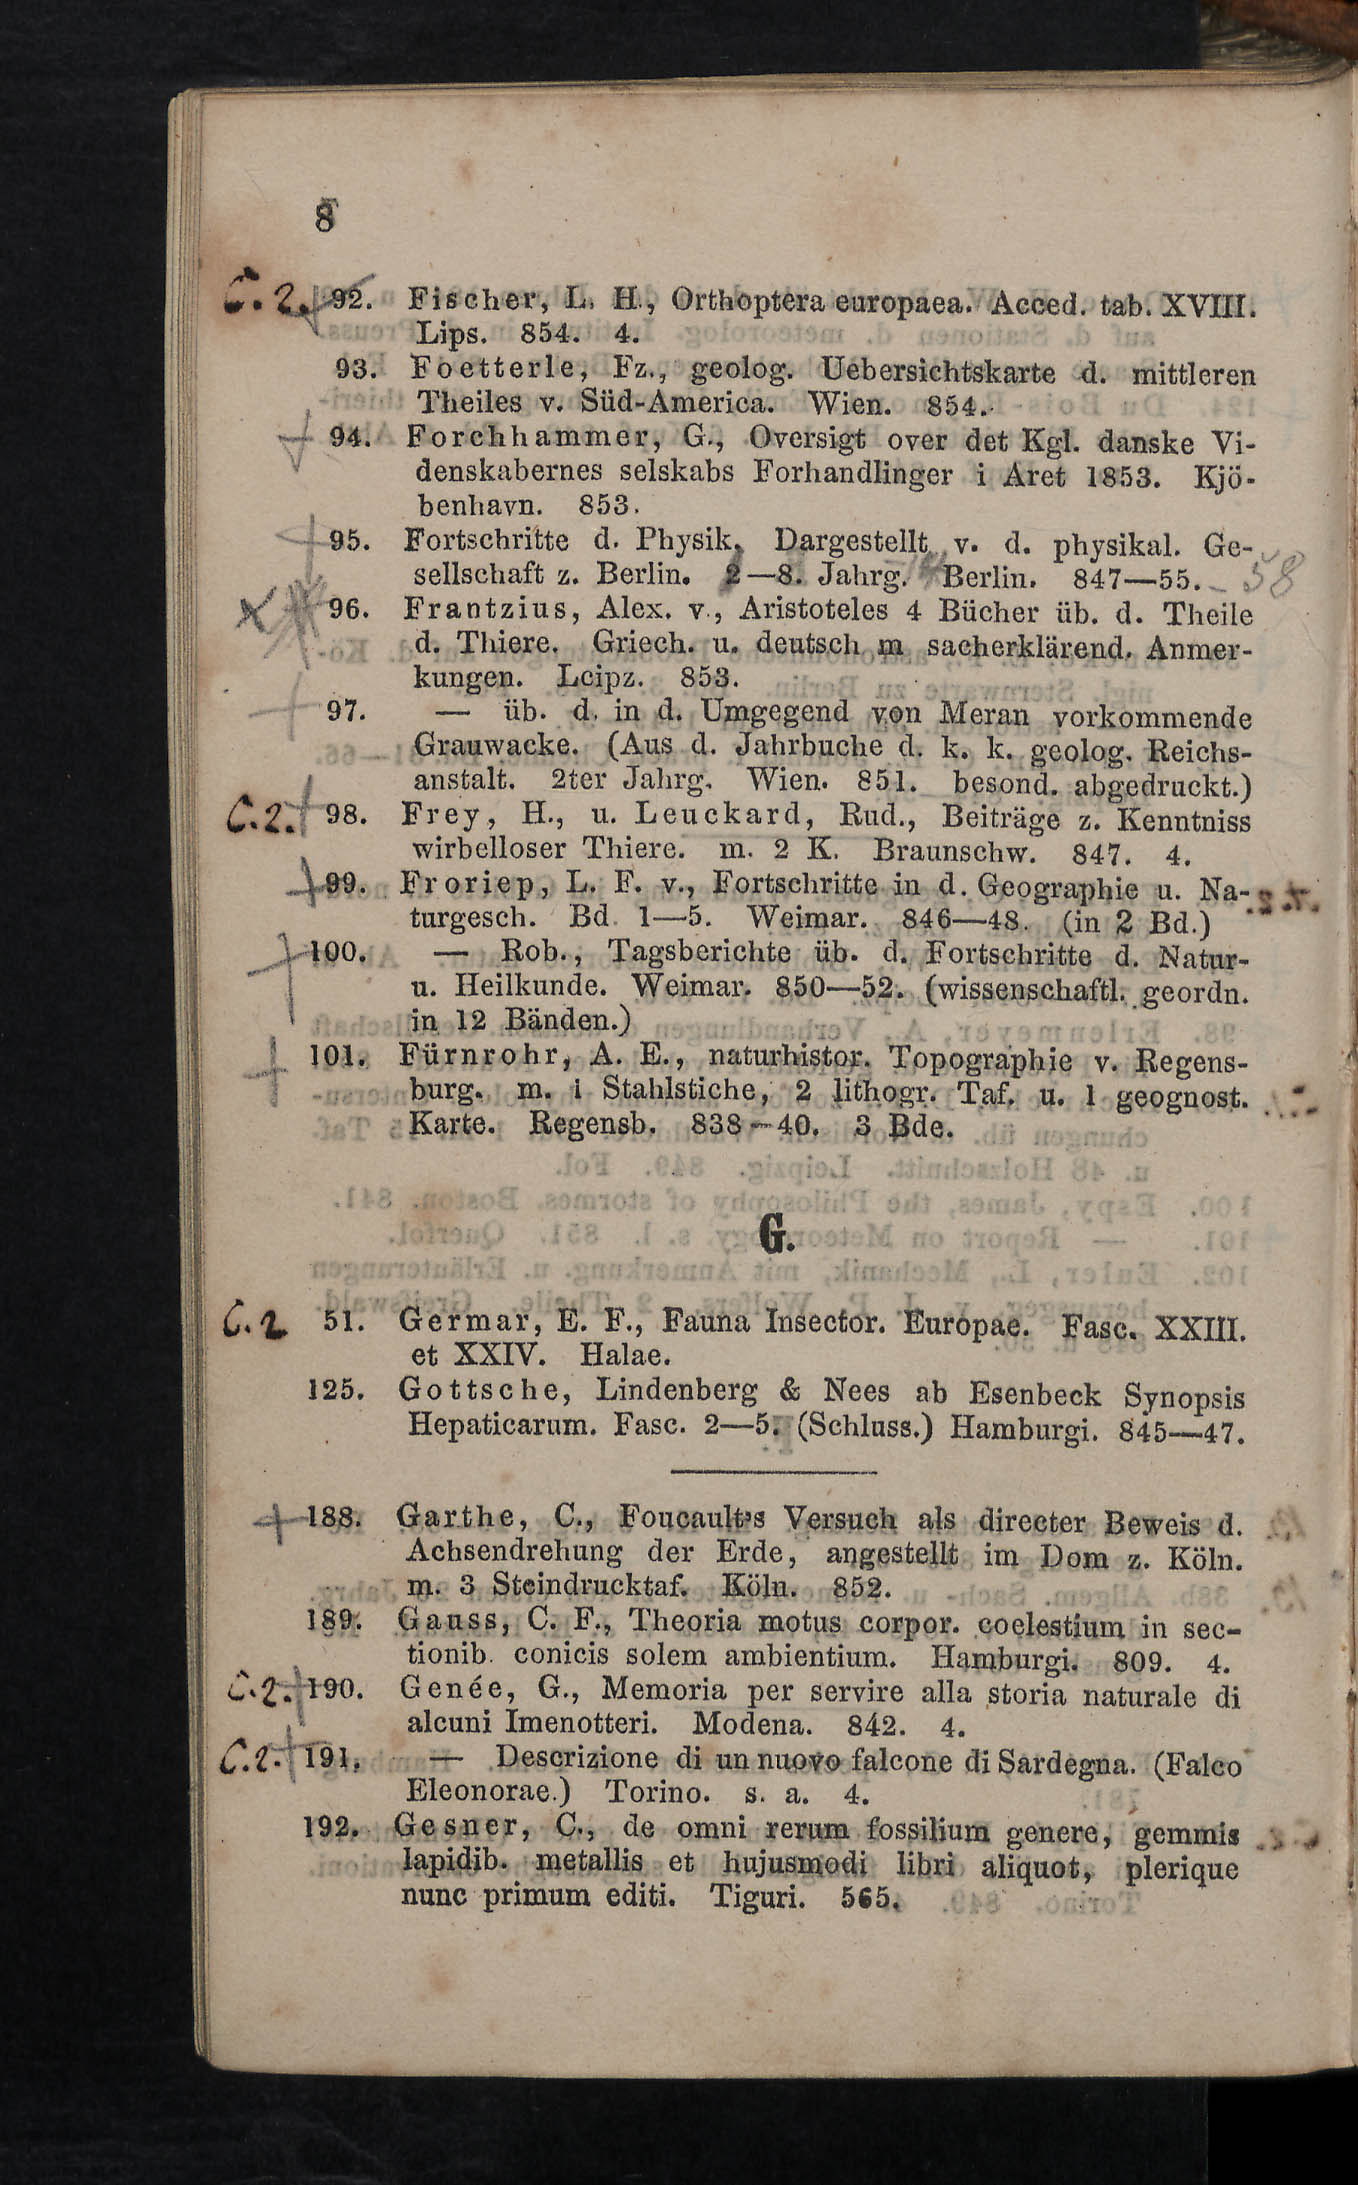 8
C. 2. 92. Fischer, L. H., Orthoptera europaea. Acced. tab. XVIII.
Lips. 854. 4.
93. Foetterle, Fz., geolog. Uebersichtskarte d. mittleren
Theiles v. Süd-America. Wien. 854.
94. Forchhammer, G., Oversigt over det Kgl. danske Vi-
denskabernes selskabs Forhandlinger i Aret 1853. Kjö-
benhavn. 853.
95. Fortschritte d. Physik. Dargestellt v. d. physikal. Ge-
sellschaft z. Berlin. 2—8. Jahrg. Berlin. 847—55. 58
96. Frantzius, Alex. v., Aristoteles 4 Bücher üb. d. Theile
d. Thiere. Griech. u. deutsch m sacherklärend. Anmer-
kungen. Leipz. 853.
97. — üb. d. in d. Umgegend von Meran vorkommende
Grauwacke. (Aus d. Jahrbuche d. k. k. geolog. Reichs-
anstalt. 2ter Jahrg. Wien. 851. besond. abgedruckt.)
C. 2. 98. Frey, H., u. Leuckard, Rud., Beiträge z. Kenntniss
wirbelloser Thiere. m. 2 K. Braunschw. 847. 4.
99. Froriep, L. F. v., Fortschritte in d. Geographie u. Na-
turgesch. Bd. 1—5. Weimar. 846—48. (in 2 Bd.)
100. — Rob., Tagsberichte üb. d. Fortschritte d. Natur-
u. Heilkunde. Weimar. 850—52. (wissenschaftl. geordn.
in 12 Bänden.)
101. Fürnrohr, A. E., naturhistor. Topographie v. Regens-
burg. m. 1 Stahlstiche, 2 lithogr. Taf. u. 1 geognost.
Karte. Regensb. 838—40. 3 Bde.
G.
C. 2 51. Germar, E. F., Fauna Insector. Europae. Fasc. XXIII.
et XXIV. Halae.
125. Gottsche, Lindenberg & Nees ab Esenbeck Synopsis
Hepaticarum. Fasc. 2—5. (Schluss.) Hamburgi. 845—47.
188. Garthe, C., Foucault's Versuch als directer Beweis d.
Achsendrehung der Erde, angestellt im Dom z. Köln.
m. 3 Steindrucktaf. Köln. 852.
189. Gauss, C. F., Theoria motus corpor. coelestium in sec-
tionib. conicis solem ambientium. Hamburgi. 809. 4.
C. 2. 190. Genée, G., Memoria per servire alla storia naturale di
alcuni Imenotteri. Modena. 842. 4.
C. 2. 191. — Descrizione di un nuovo falcone di Sardegna. (Falco
Eleonorae.) Torino. s. a. 4.
192. Gesner, C., de omni rerum fossilium genere, gemmis
lapidib. metallis et hujusmodi libri aliquot, plerique
nunc primum editi. Tiguri. 565.